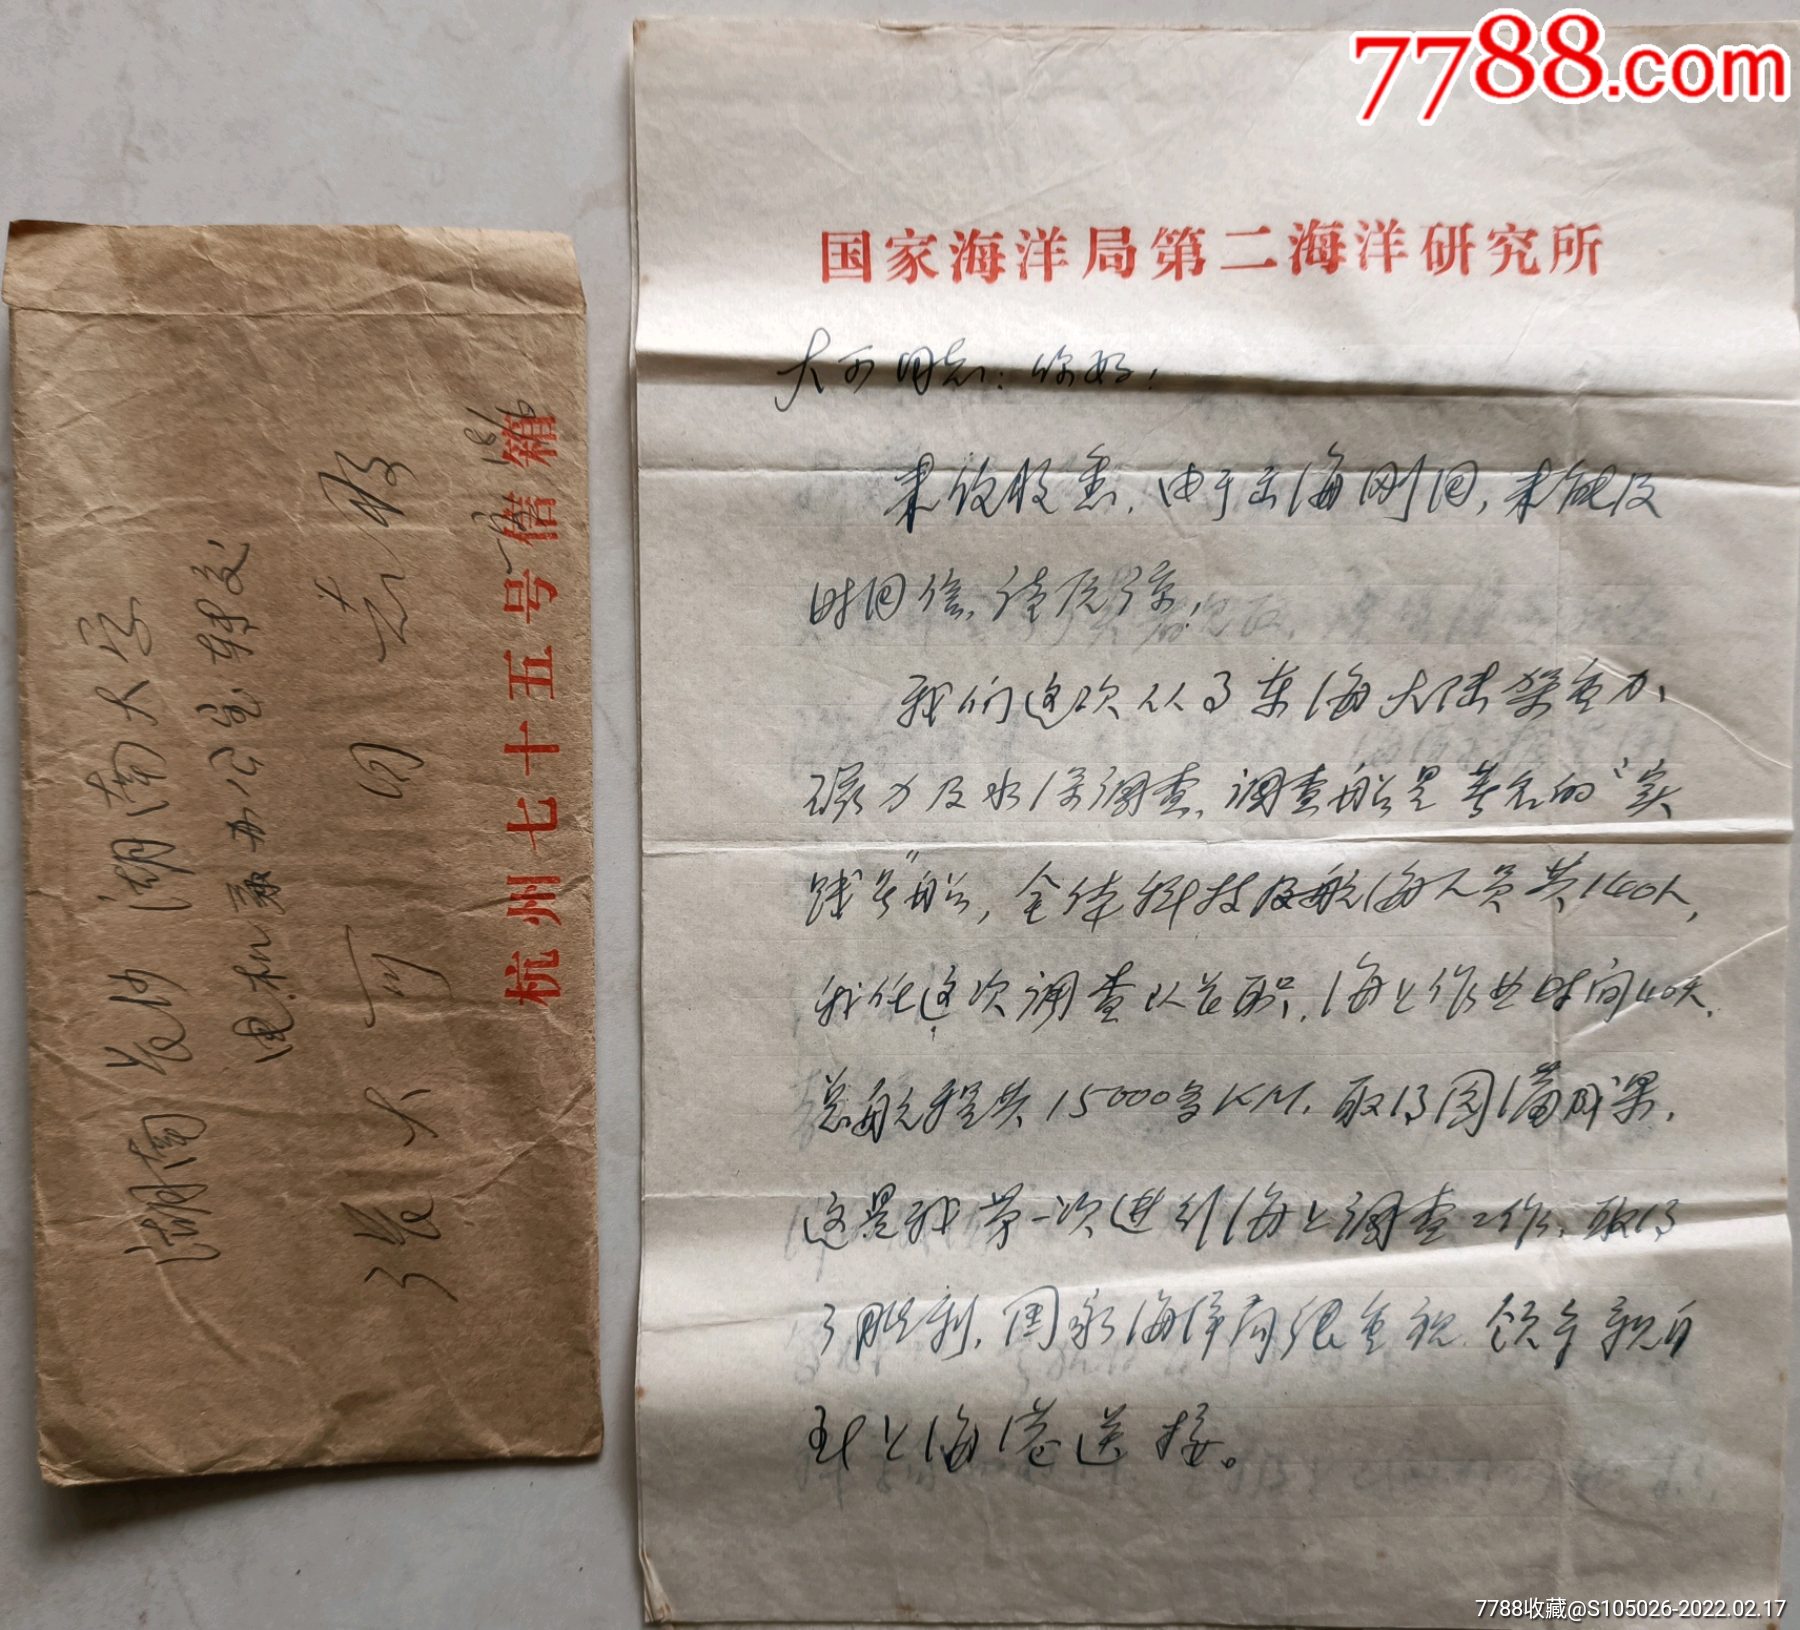 7788.com
国家海洋局第二海洋研究所
大可同志:你好!
来信收悉,由于出海刚回,未能及
时回信,请原谅!
我们这次从事东海大陆架重力、
磁力及水深调查,调查船是著名的“实
践号”船,全体科技及航海人员共140人,
我任这次调查队首职,海上作业时间40天,
总航程共15000多KM,取得圆满成果,
这是我第一次进行海上调查工作,取得
了胜利,国家海洋局很重视,领导亲自
到上海港送接。
湖南长沙湖南大学
电机系办公室转交
张大可同志收
杭州七十五号信箱
7788收藏@S105026-2022.02.17